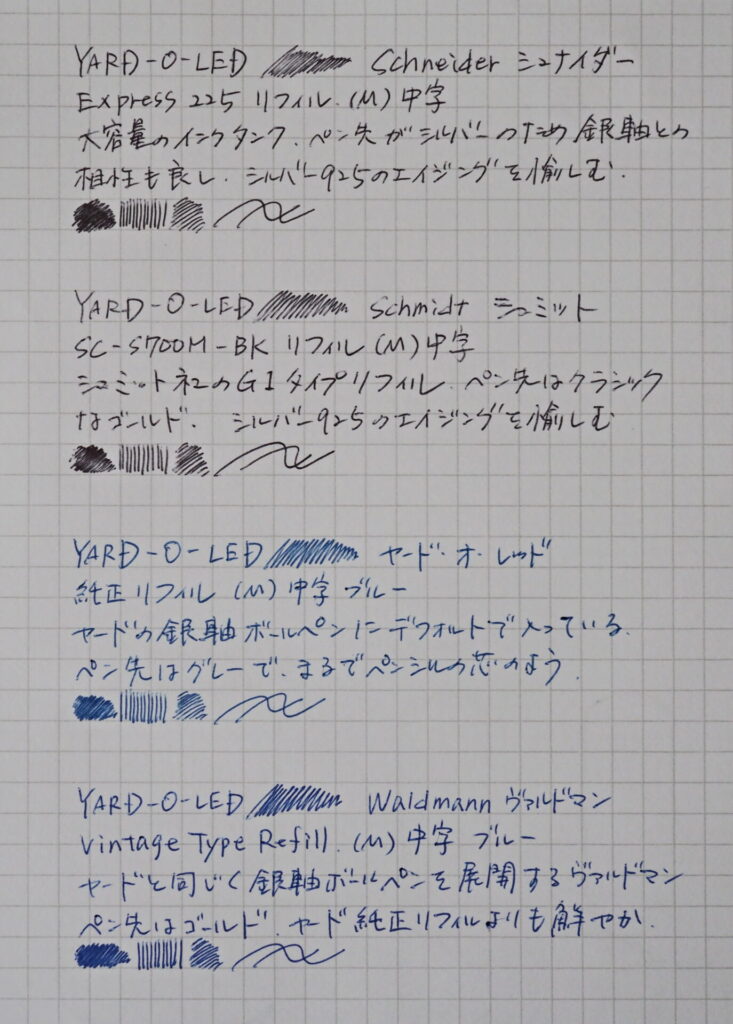 YARD-O-LED Schneider シュナイダー
Express 225 リフィル.(M)中字
大容量のインクタンク.ペン先がシルバーのため銀軸との
相性も良し.シルバー925のエイジングを愉しむ.
YARD-O-LED Schmidt シュミット
SC-S700M-BK リフィル(M)中字
シュミット社のG1タイプリフィル.ペン先はクラシック
なゴールド. シルバー925のエイジングを愉しむ
YARD-O-LED ヤード・オ・レッド
純正リフィル (M)中字 ブルー
ヤードの銀軸ボールペンにデフォルトで入っている.
ペン先はグレーで、まるでペンシルの芯のよう.
YARD-O-LED Waldmann ヴァルドマン
Vintage Type Refill.(M)中字 ブルー
ヤードと同じく銀軸ボールペンを展開するヴァルドマン
ペン先はゴールド.ヤード純正リフィルよりも鮮やか.